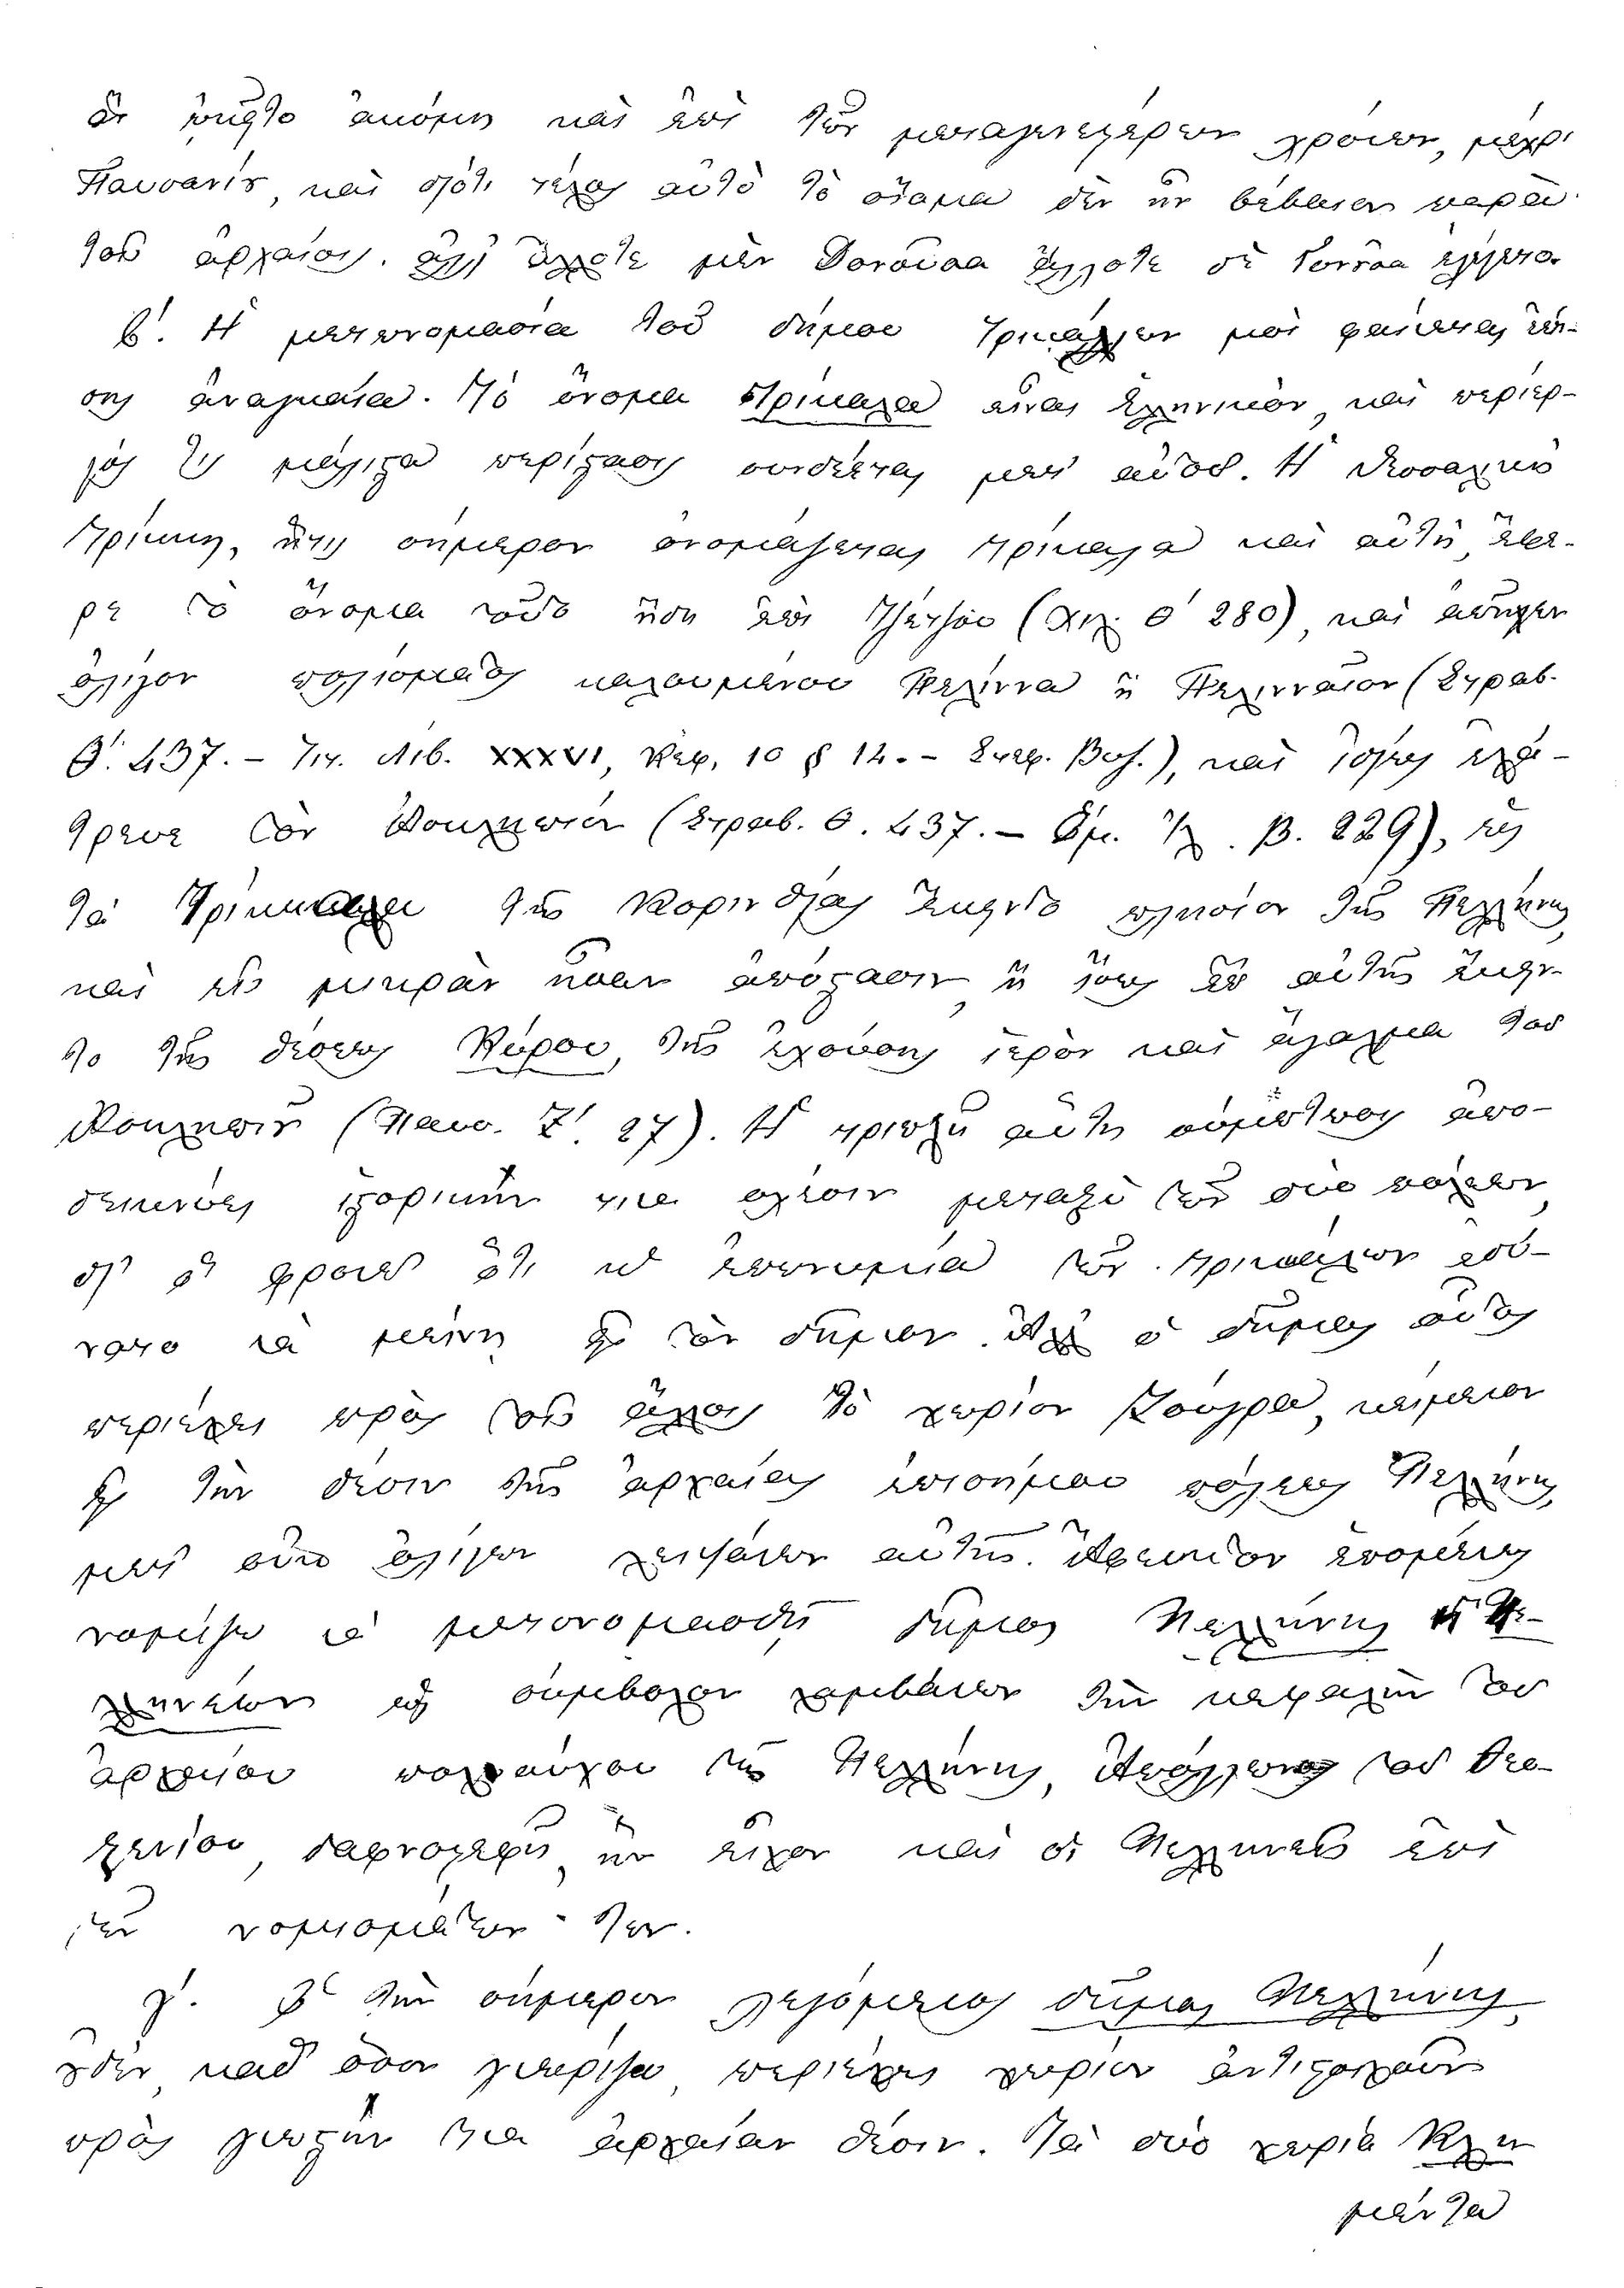 ὂν ἐπηυξᾶτο ἀκόμη καὶ ἐπὶ τῶν μεταγενεστέρων χρόνων, μέχρι
Παυσανίου, καὶ διότι τέλος αὐτὸ τὸ ὄνομα δὲν ἦν βέβαιον παρὰ
τοῖς ἀρχαίοις. ἀλλ' ἄλλοτε μὲν Δονοῦσα ἄλλοτε δὲ Γονόεσσα ἐγράφετο.
β'. Ἡ μετονομασία τοῦ δήμου Τρικάλλων μοὶ φαίνεται ἐπί-
σης ἀναγκαία. Τὸ ὄνομα Τρίκαλα εἶναι ἑλληνικόν, καὶ περίερ-
γός τις μάλιστα περίστασις συνδέεται μετ' αὐτοῦ. Ἡ Θεσσαλικὴ
Τρίκκη, ἥτις σήμερον ὀνομάζεται Τρίκαλα καὶ αὐτή, ἔφε-
ρε τὸ ὄνομα τοῦτο ἤδη ἐπὶ Τζέτζου (Χιλ. Θ' 280), καὶ ἀπεῖχεν
ὀλίγον πολίσματος καλουμένου Πέλιννα ἢ Πελινναῖον (Στραβ.
Θ'. 437. – Τιτ. Λιβ. XXXVI, Κεφ. 10 § 14. – Στεφ. Βυζ.), καὶ ἰδίως ἐλά-
τρευε τὸν Ἀσκληπιόν (Στραβ. Θ. 437. – Ὁμ. Ἰλ. Β. 229), εἰς
τὰ Τρίκκαλα τῆς Κορινθίας ἔκειντο πλησίον τῆς Πελλήνης,
καὶ εἰς μικρὰν ἦσαν ἀπόστασιν, ἢ ἴσως ἐπ' αὐτῆς ἔκειν-
το τῆς θέσεως Κύρου, τῆς ἐχούσης ἱερὸν καὶ ἄγαλμα τοῦ
Ἀσκληπιοῦ (Παυσ. Ζ'. 27). Ἡ τριπλῆ αὕτη σύμπτωσις ἀπο-
δεικνύει ἱστορικήν τινα σχέσιν μεταξὺ τῶν δύο πόλεων,
δι' ὃ φρονῶ ὅτι ἡ ἐπωνυμία τῶν Τρικάλων ἐδύ-
νατο νὰ μείνῃ εἰς τὸν δῆμον. Ἀλλ' ὁ δῆμος οὗτος
περιέχει πρὸς τοῖς ἄλλοις τὸ χωρίον Ζούγρα, κείμενον
εἰς τὴν θέσιν τῆς ἀρχαίας ἐπισήμου πόλεως Πελλήνης,
μετ' οὐκ ὀλίγων λειψάνων αὐτῆς. Ἀρκοῦν ἑπομένως
νομίζω νὰ μετονομασθῇ δῆμος Πελλήνης ἢ Πελ-
ληνέων εἰς σύμβολον λαμβάνων τὴν κεφαλὴν τοῦ
ἀρχαίου πολιούχου τῆς Πελλήνης, Ἀπόλλωνος τοῦ Θεο-
ξενίου, δαφνοστεφῆ, ἣν εἶχον καὶ οἱ Πελληνεῖς ἐπὶ
τῶν νομισμάτων των.
γ'. Ὁ δὲ νῦν σήμερον λεγόμενος δῆμος Πελλήνης,
οὐδὲν, καθ' ὅσον γνωρίζω, περιέχει χωρίον ἀντιστοιχοῦν
πρὸς γνωστήν τινα ἀρχαίαν θέσιν. Τὰ δύο χωρία Κλη
μέντα